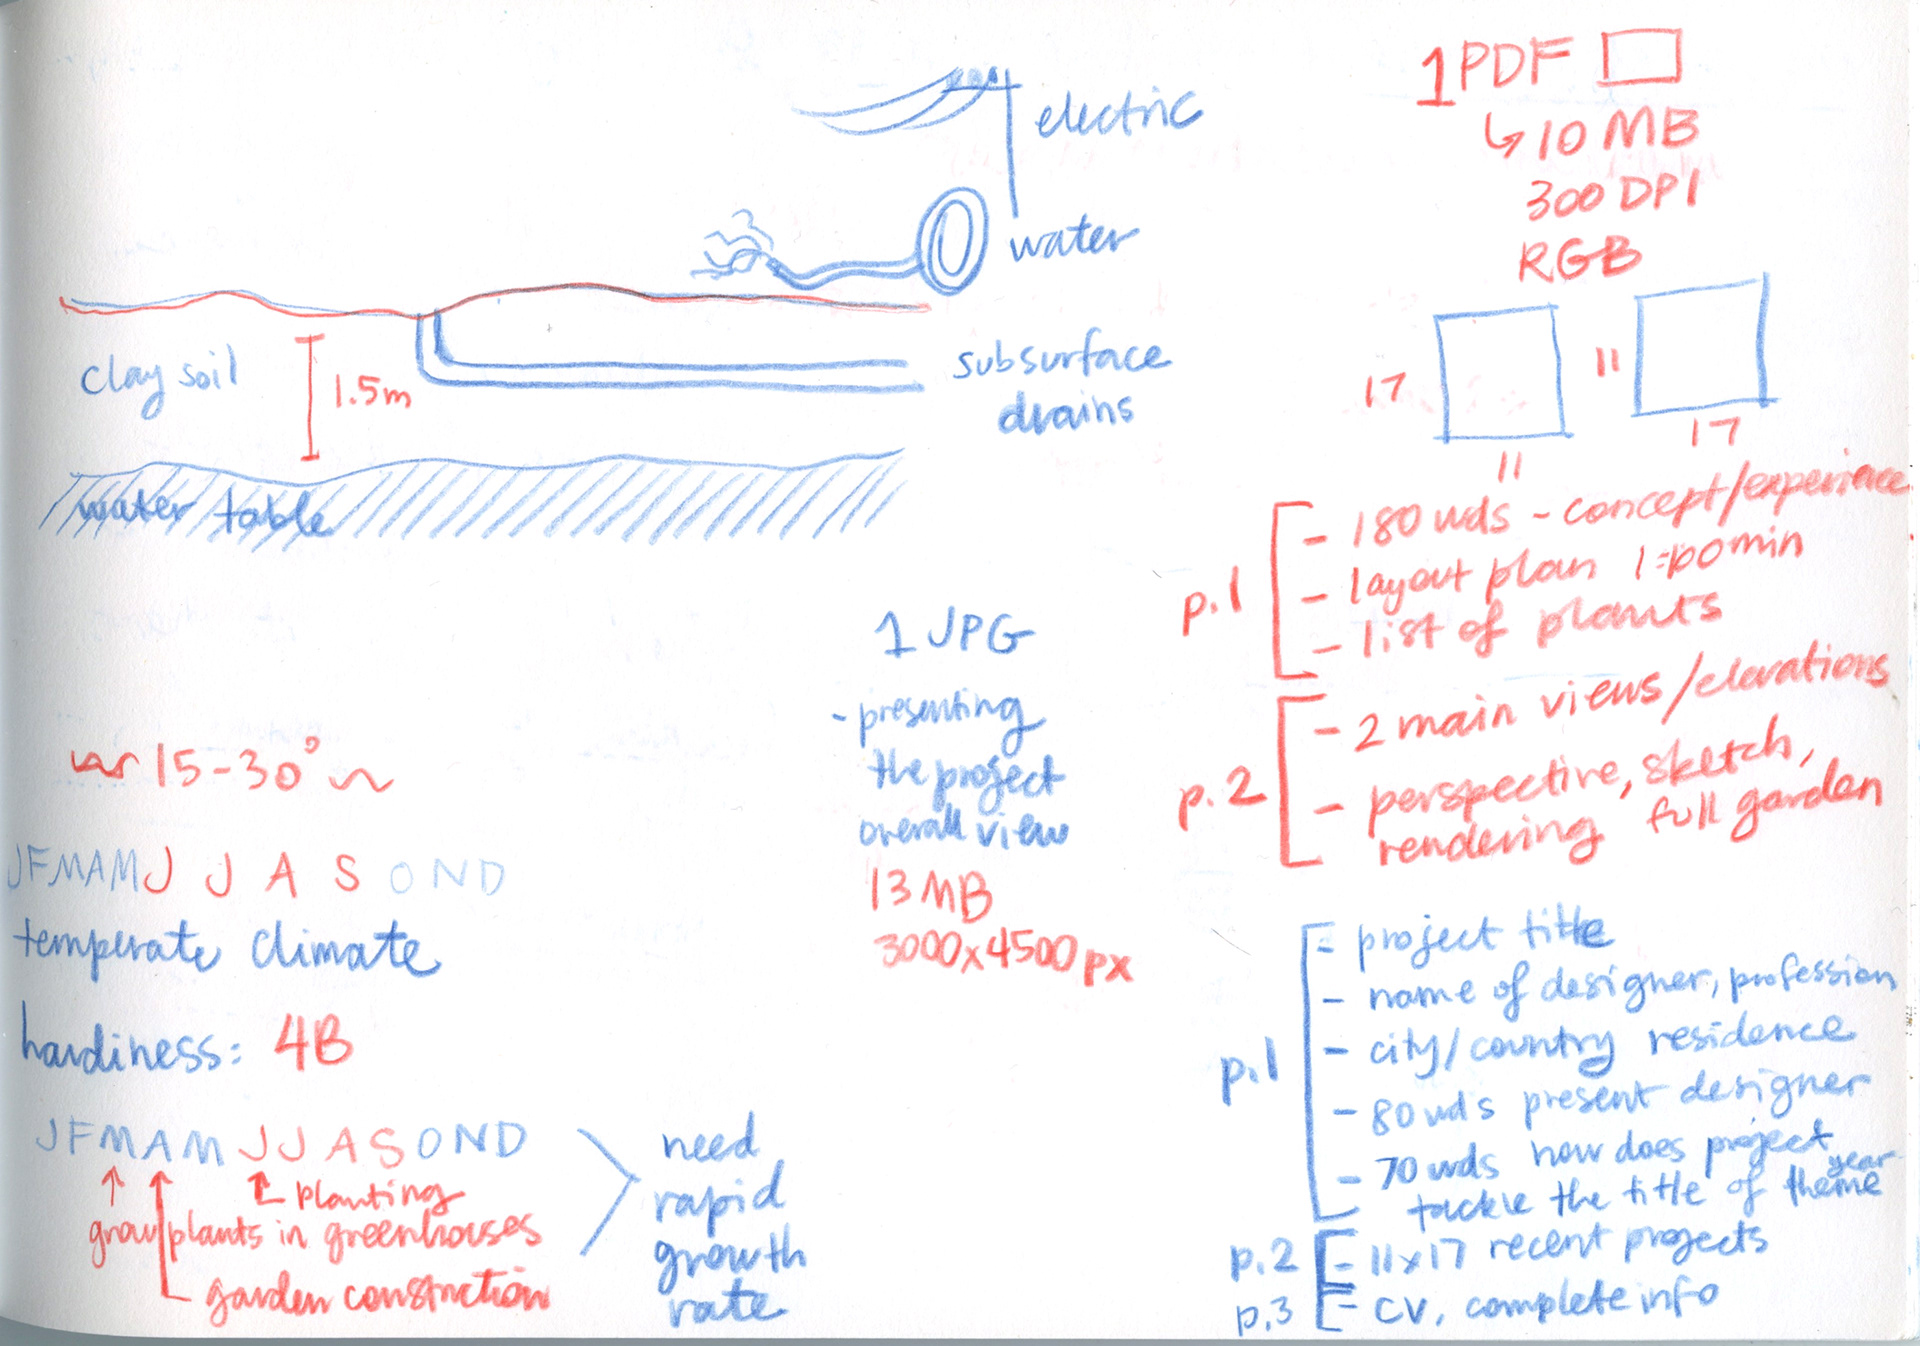 electric
water
clay soil
1.5m
subsurface
drains
water table
15-30°
JFMAMJ J A S O N D
temperate climate
hardiness: 4B
J F M A M J J A S O N D
planting
grow plants in greenhouses
garden construction
need
rapid
growth
rate
1 JPG
- presenting
the project
overall view
13 MB
3000x4500 px
1 PDF
↳ 10 MB
300 DPI
RGB
17
11
11
17
p.1
- 180 wds - concept/experience
- layout plan min
- list of plants
p.2
- 2 main views/elevations
- perspective, sketch,
rendering full garden
p.1
- project title
- name of designer, profession
- city/country residence
- 80 wds present designer
- 70 wds how does project
tackle the title of year theme
p.2
- 11x17 recent projects
p.3
- CV, complete info